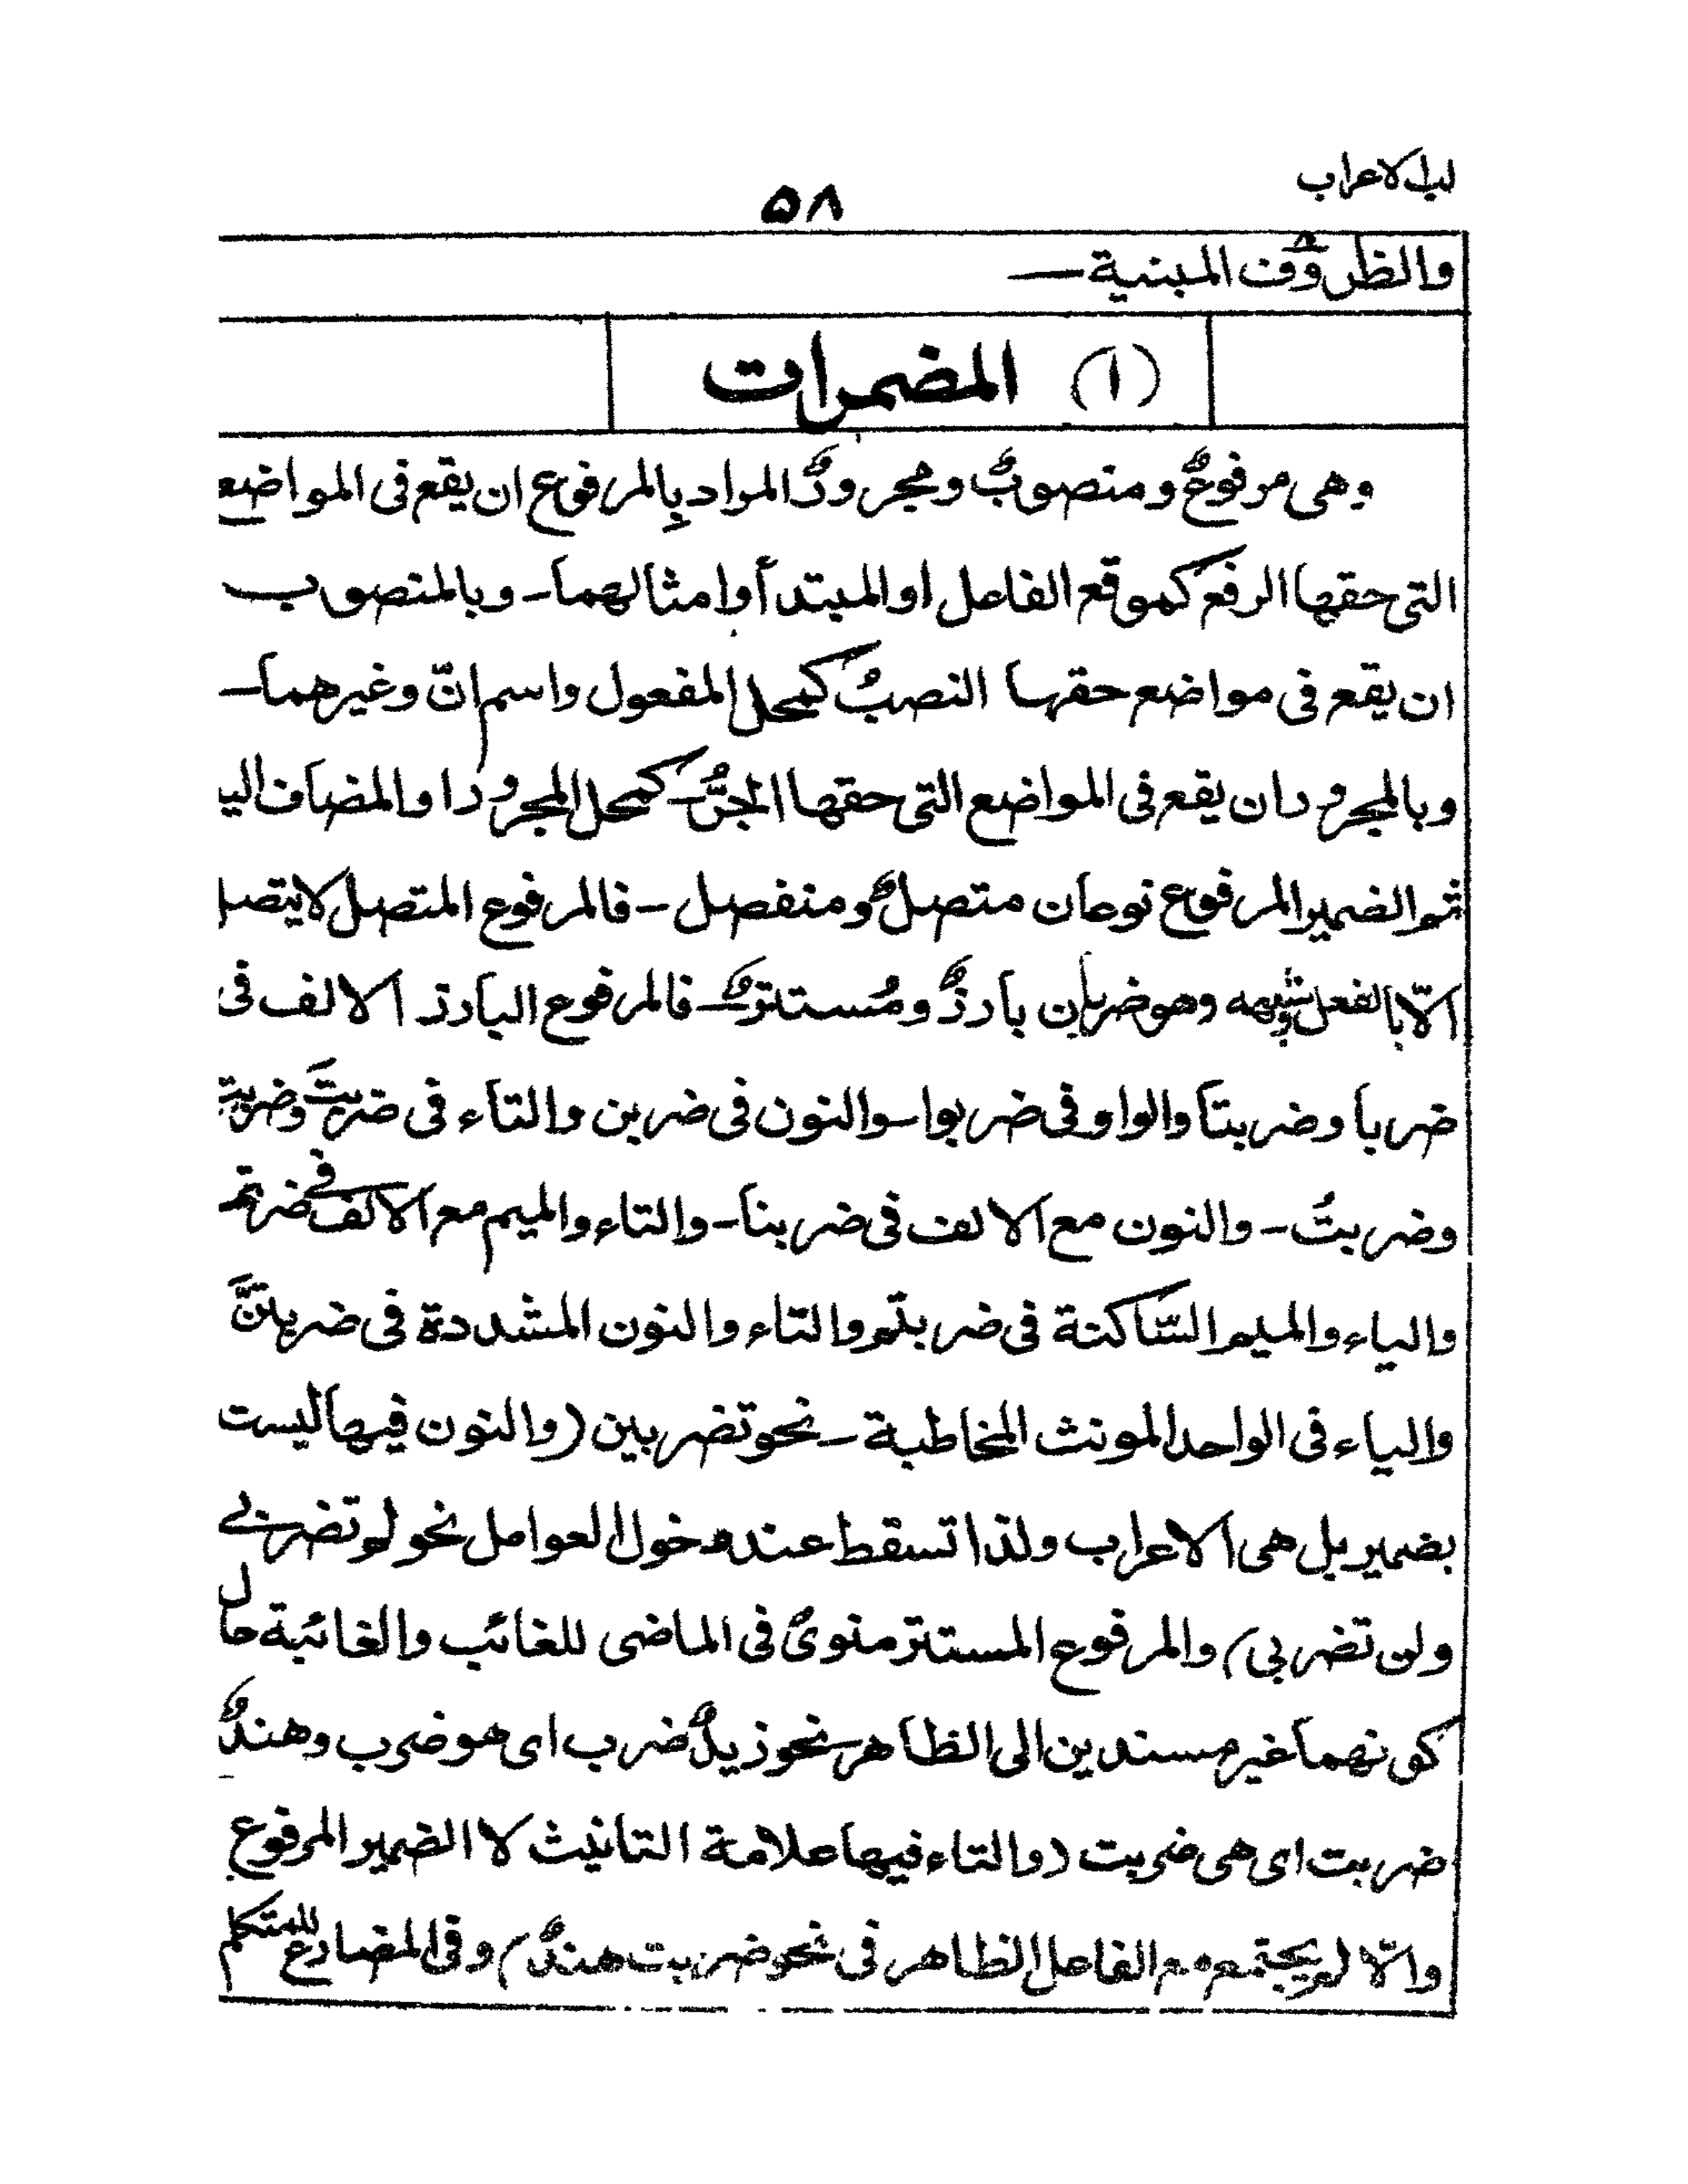 لباب الاعراب
۵۸
والظروف المبنية —
(۱) المضمرات
وهى مرفوعٌ ومنصوبٌ ومجرورٌ المراد بِالمرفوع ان يقع فى المواضع
التى حقها الرفع كموقع الفاعل او المبتدأ او امثالهما - وبالمنصوب
ان يقع فى مواضع حقها النصبُ كمحل المفعول واسم انّ وغيرهما -
وبالمجرور ان يقع فى المواضع التى حقها الجرُّ - كمحل المجرور او المضاف اليه
ثم الضمير المرفوع نوعان متصلٌ ومنفصل - فالمرفوع المتصل لا يتصل
الّا بالفعل وشبهه وهو ضربان بارزٌ ومُستترٌ - فالمرفوع البارز الالف فى
ضربا وضربتا والواو فى ضربوا - والنون فى ضربن والتاء فى ضربتَ وضربتِ
وضربتُ - والنون مع الالف فى ضربنا - والتاء والميم مع الالف فى ضربتما
والياء والميم السّاكنة فى ضربتم والتاء والنون المشددة فى ضربتنَّ
والياء فى الواحد المونث المخاطبة - نحو تضربين (والنون فيها ليست
بضمير بل هى الاعراب ولذا تسقط عند دخول العوامل نحو لم تضربى
ولن تضربى) والمرفوع المستتر منوىٌ فى الماضى للغائب والغائبة حال
كونهما غير مسندين الى الظاهر - نحو زيدٌ ضرب اى هو ضرب وهندٌ
ضربت اى هى ضربت (والتاء فيها علامة التانيث لا الضمير المرفوع
والّا لم يجتمع مع الفاعل الظاهر فى نحو ضربت هندٌ) وفى المضارع للمتكلم